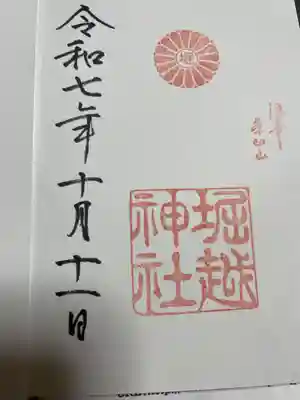 堀
堀越
神社
令和七年十月十一日